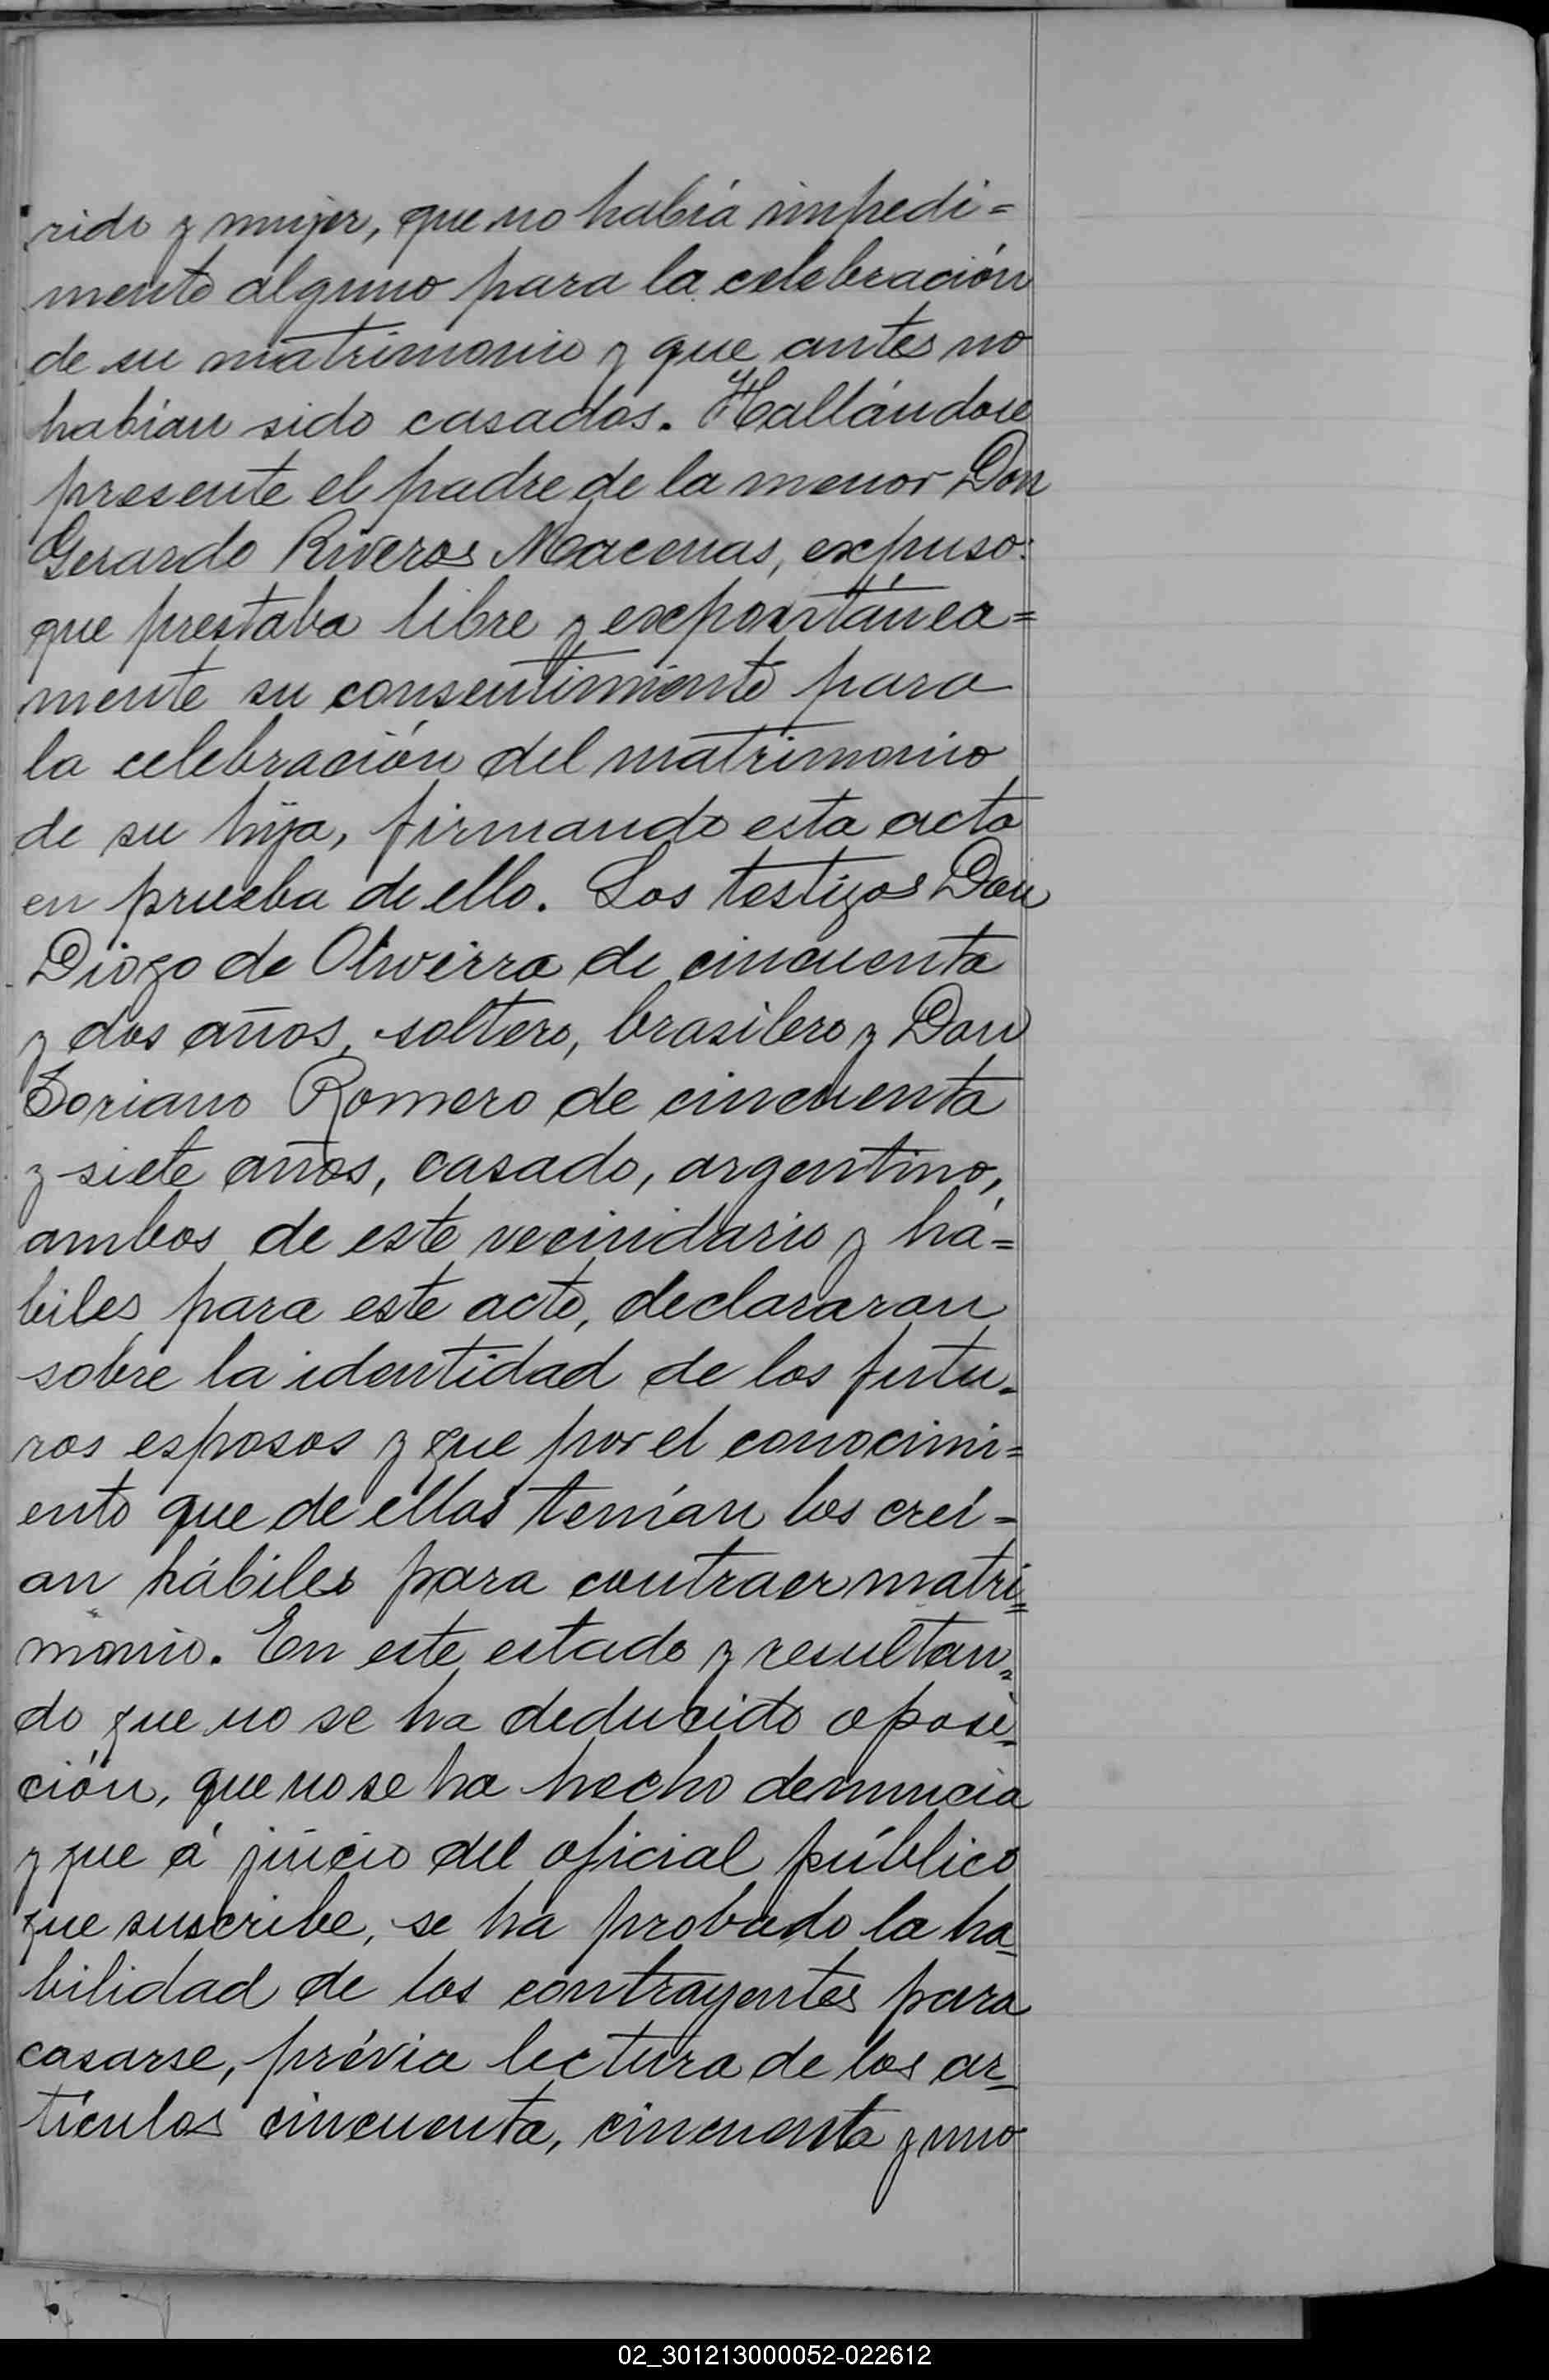 rido y mujer, que no había impedi=
mento alguno para la celebración
de su matrimonio y que antes no
habían sido casados. Hallándose
presente el padre de la menor Don
Gerardo Riveros Macenas, expuso:
que prestaba libre y expontánea=
mente su consentimiento para
la celebración del matrimonio
de su hija, firmando esta acta
en prueba de ello. Los testigos Don
Diogo de Oliveirra de cincuenta
y dos años, soltero, brasilero y Don
Soriano Romero de cincuenta
y siete años, casado, argentino,
ambos de este vecindario y há=
biles para este acto, declararan
sobre la identidad de los futu-
ros esposos y que por el conocimi=
ento que de ellos tenían los creí-
an hábiles para contraer matri=
monio. En este estado y resultan=
do que no se ha deducido oposi-
ción, que no se ha hecho denuncia
y que á juicio del oficial público
que suscribe, se ha probado la ha-
bilidad de los contrayentes para
casarse, prévia lectura de los ar-
tículos cincuenta, cincuenta y uno
02_301213000052-022612